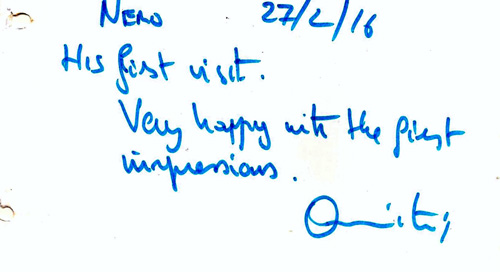 Nero 27/2/16
His first visit.
Very happy with the first
impressions.